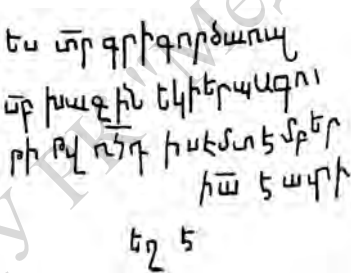 ես տ̅ր գրիգործառայ
ս̅բ խաչին եկիերպագու
թի թվ ռ̅ծդ իսէմտեմբեր
իա̅ է ապրի
եղ է